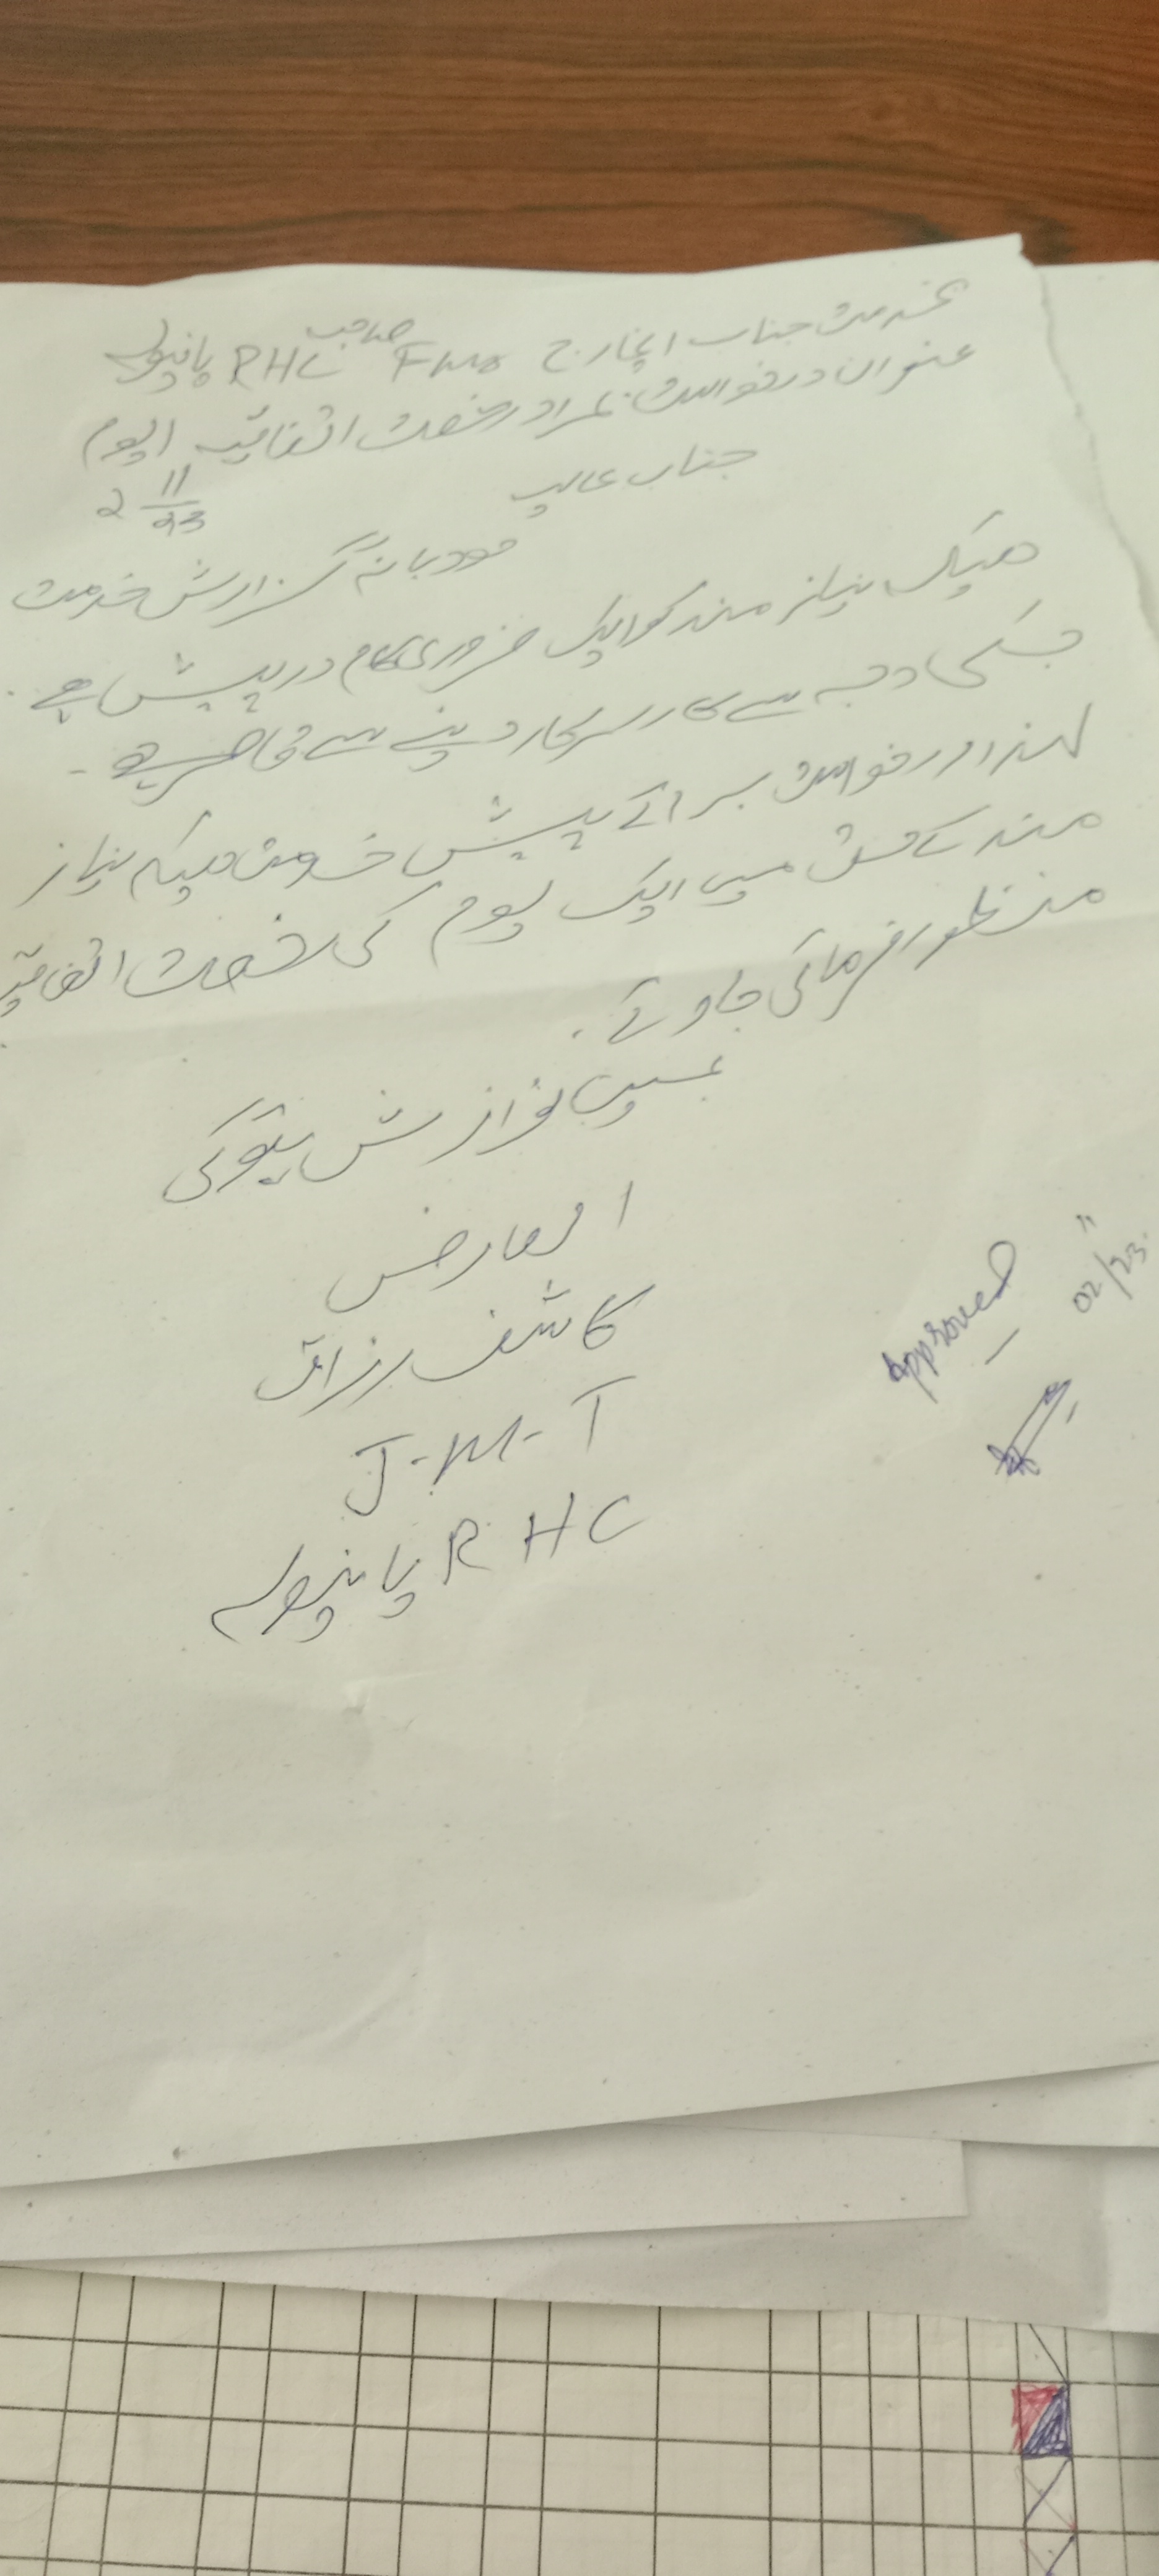 بخدمت جناب انچارج FMO صاحب RHC پانپولہ
عنوان درخواست بمراد رخصت اتفاقیہ 1 یوم
2 11/23
جناب عالیہ
مودبانہ گزارش خدمت
ہیکہ نیاز مند کو ایک ضروری کام درپیش ہے۔
جسکی وجہ سے کار سرکار دینے سے قاصر ہے۔
لہذا درخواست برائے پیش خدمت ہیکہ نیاز
مند کے حق میں ایک یوم کی رخصت اتفاقیہ
منظور فرمائی جاوئے۔
عین نوازش ہوگی
العارض
کاشف رزاق
J-M-T
RHC پانپولہ
Approved
11
02/23.